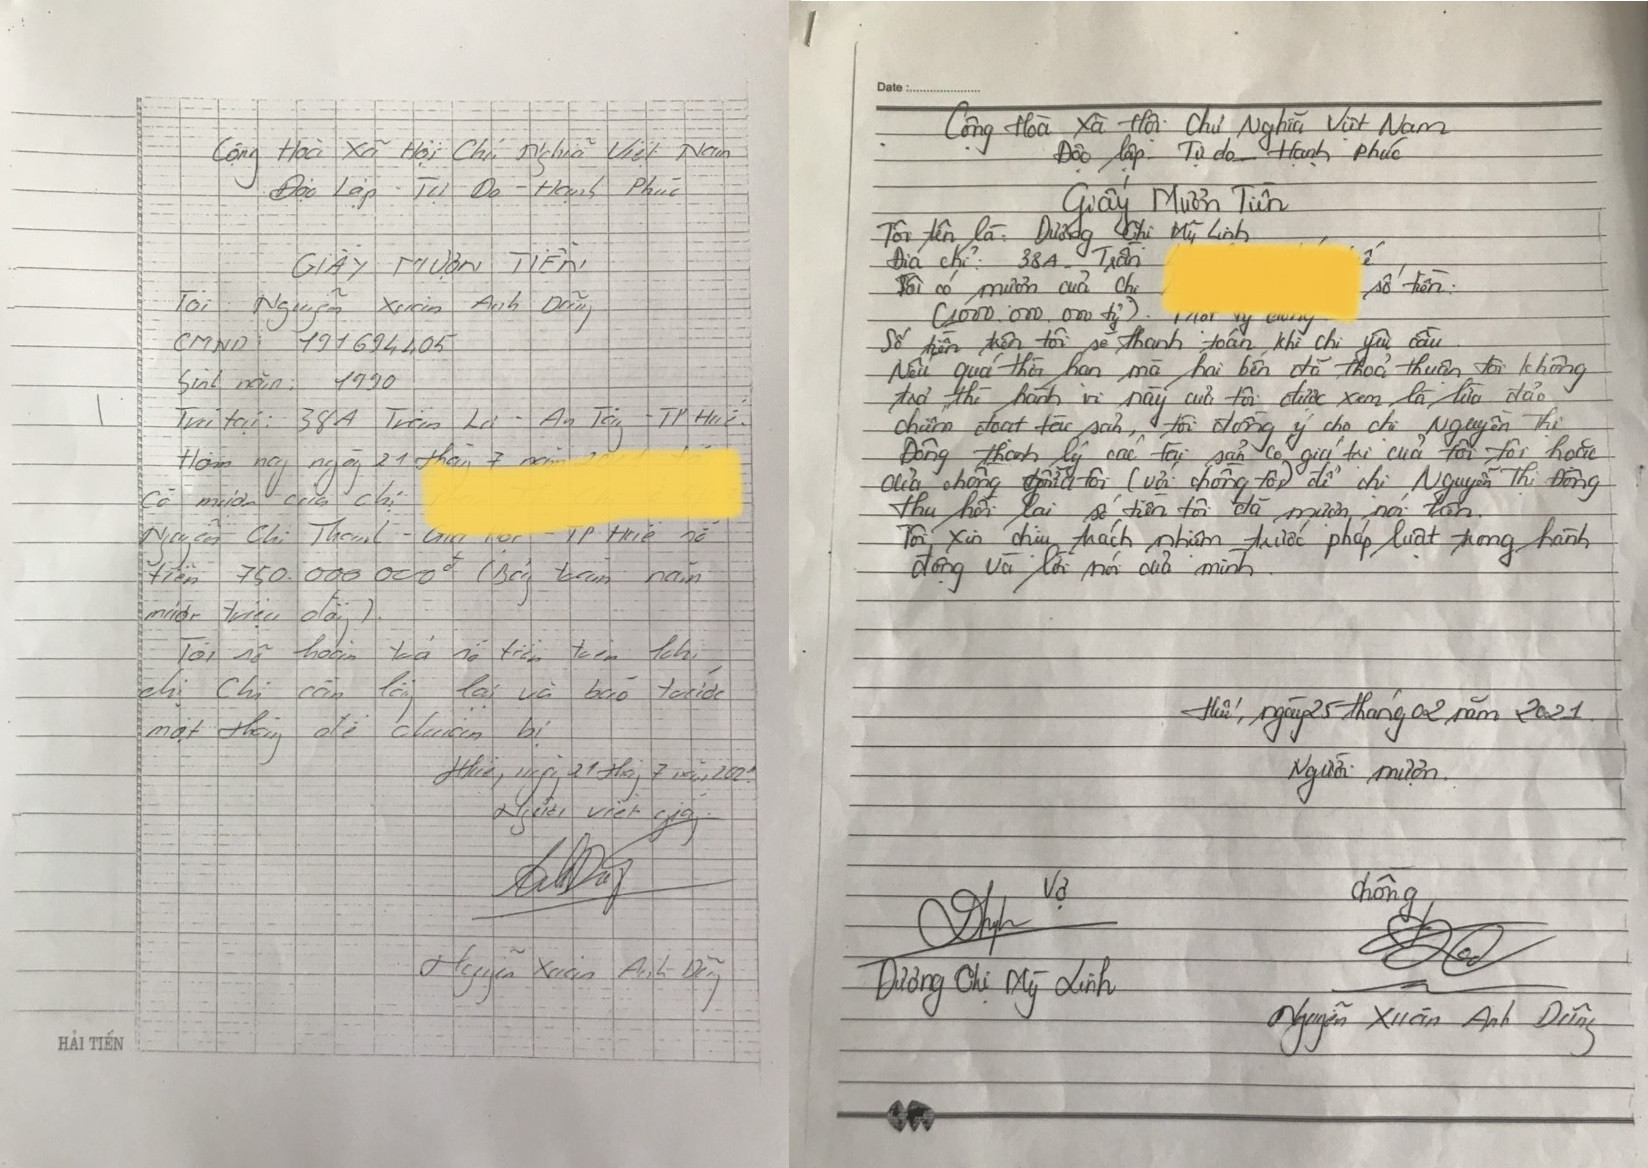 Cộng Hoà Xã Hội Chủ Nghĩa Việt Nam
Độc Lập - Tự Do - Hạnh Phúc
GIẤY MƯỢN TIỀN
Tôi: Nguyễn Xuân Anh Dũng
CMND: 191694405
Sinh năm: 1990
Trú tại: 38A Trần Lư - An Tây - TP Huế.
Hôm nay ngày 21 tháng 7 năm
Có mượn của chị
Nguyễn Chí Thanh - - TP Huế số
tiền 750.000.000đ (Bảy trăm năm
mươi triệu đồng).
Tôi sẽ hoàn trả số tiền trên khi
chị Chi cần lấy lại và báo trước
một tháng để chuẩn bị
Huế, ngày 21 tháng 7 năm 2021
Người viết giấy
Nguyễn Xuân Anh Dũng
HẢI TIẾN
Date :
Cộng Hoà Xã Hội Chủ Nghĩa Việt Nam
Độc lập - Tự do - Hạnh Phúc
Giấy Mượn Tiền
Tôi tên là: Dương Chi Mỹ Linh
Địa chỉ: 38A - Trần
Tôi có mượn của Chị số tiền:
(1000.000.000 tỷ).
Số tiền trên tôi sẽ thanh toán khi chị yêu cầu.
Nếu quá thời hạn mà hai bên đã thoả thuận tôi không
trả thì hành vi này của tôi được xem là lừa đảo
chiếm đoạt tài sản, tôi đồng ý cho chị Nguyễn Thị
Đông thanh lý các tài sản có giá trị của tôi hoặc
của chồng tôi (với chồng tôi) để chị Nguyễn Thị Đông
thu hồi lại số tiền tôi đã mượn nói trên.
Tôi xin chịu trách nhiệm trước pháp luật trong hành
động và lời nói của mình.
Huế, ngày 25 tháng 02 năm 2021
Người mượn.
Vợ
chồng
Dương Chi Mỹ Linh
Nguyễn Xuân Anh Dũng